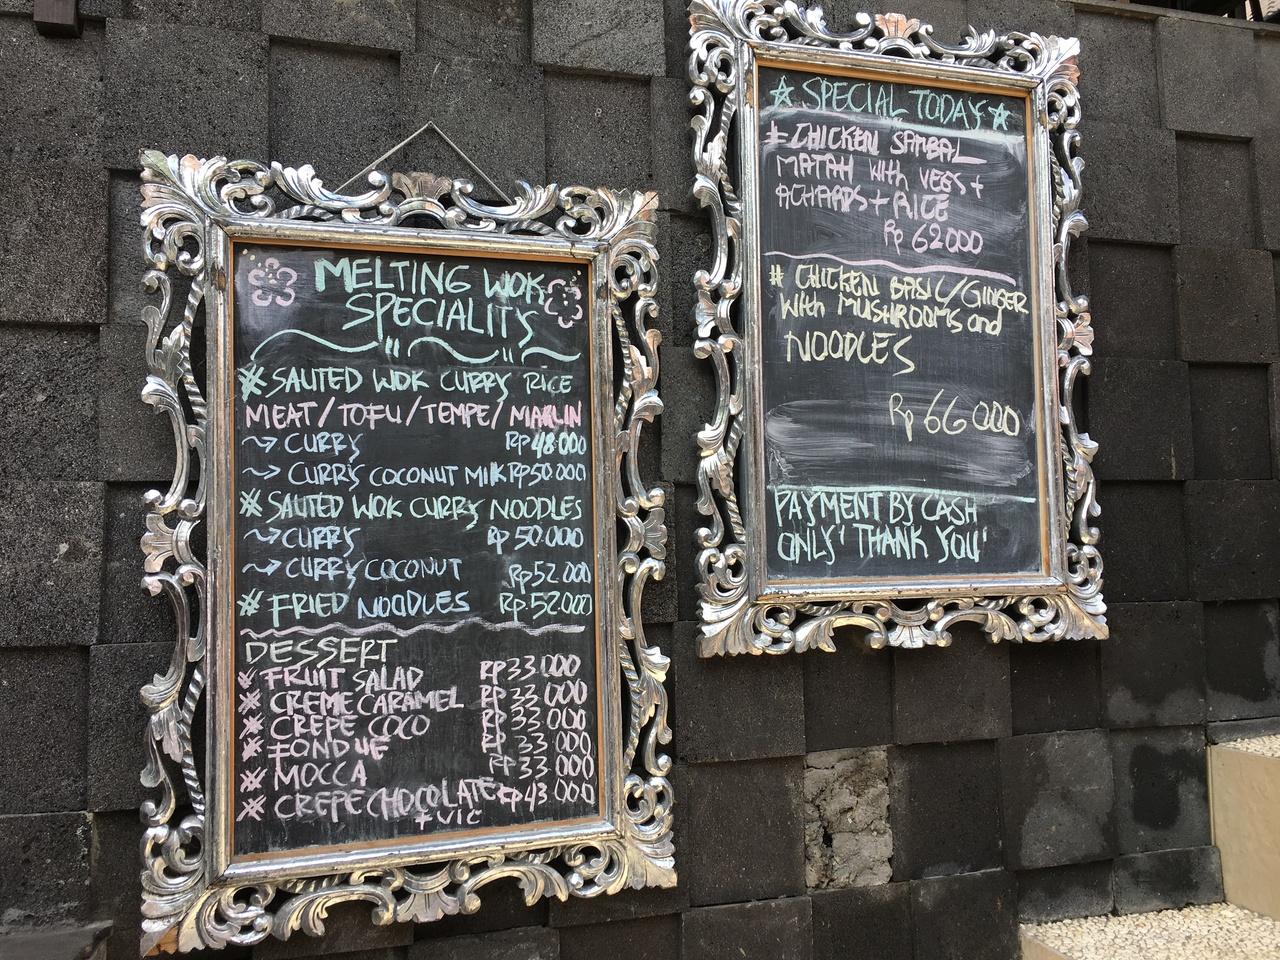 MELTING WOK
SPECIALITY
SAUTED WOK CURRY RICE
MEAT/TOFU/TEMPE/MARLIN
~> CURRY Rp 48.000
~> CURRY COCONUT MILK Rp 50.000
SAUTED WOK CURRY NOODLES
~> CURRY Rp 50.000
~> CURRY COCONUT Rp 52.000
FRIED NOODLES Rp 52.000
DESSERT
FRUIT SALAD RP 33 000
CREME CARAMEL RP 33 000
CREPE COCO RP 33 000
FONDUE RP 33 000
MOCCA RP 33 000
CREPE CHOCOLATE Rp 43 000
+ VIC
☆ SPECIAL TODAY ☆
# CHICKEN SAMBAL
MATAH With VEGS +
ACHARDS + RICE
Rp 62 000
# CHICKEN BASIC/GINGER
With MUSHROOMS and
NOODLES
Rp 66 000
PAYMENT BY CASH
ONLY 'THANK YOU'